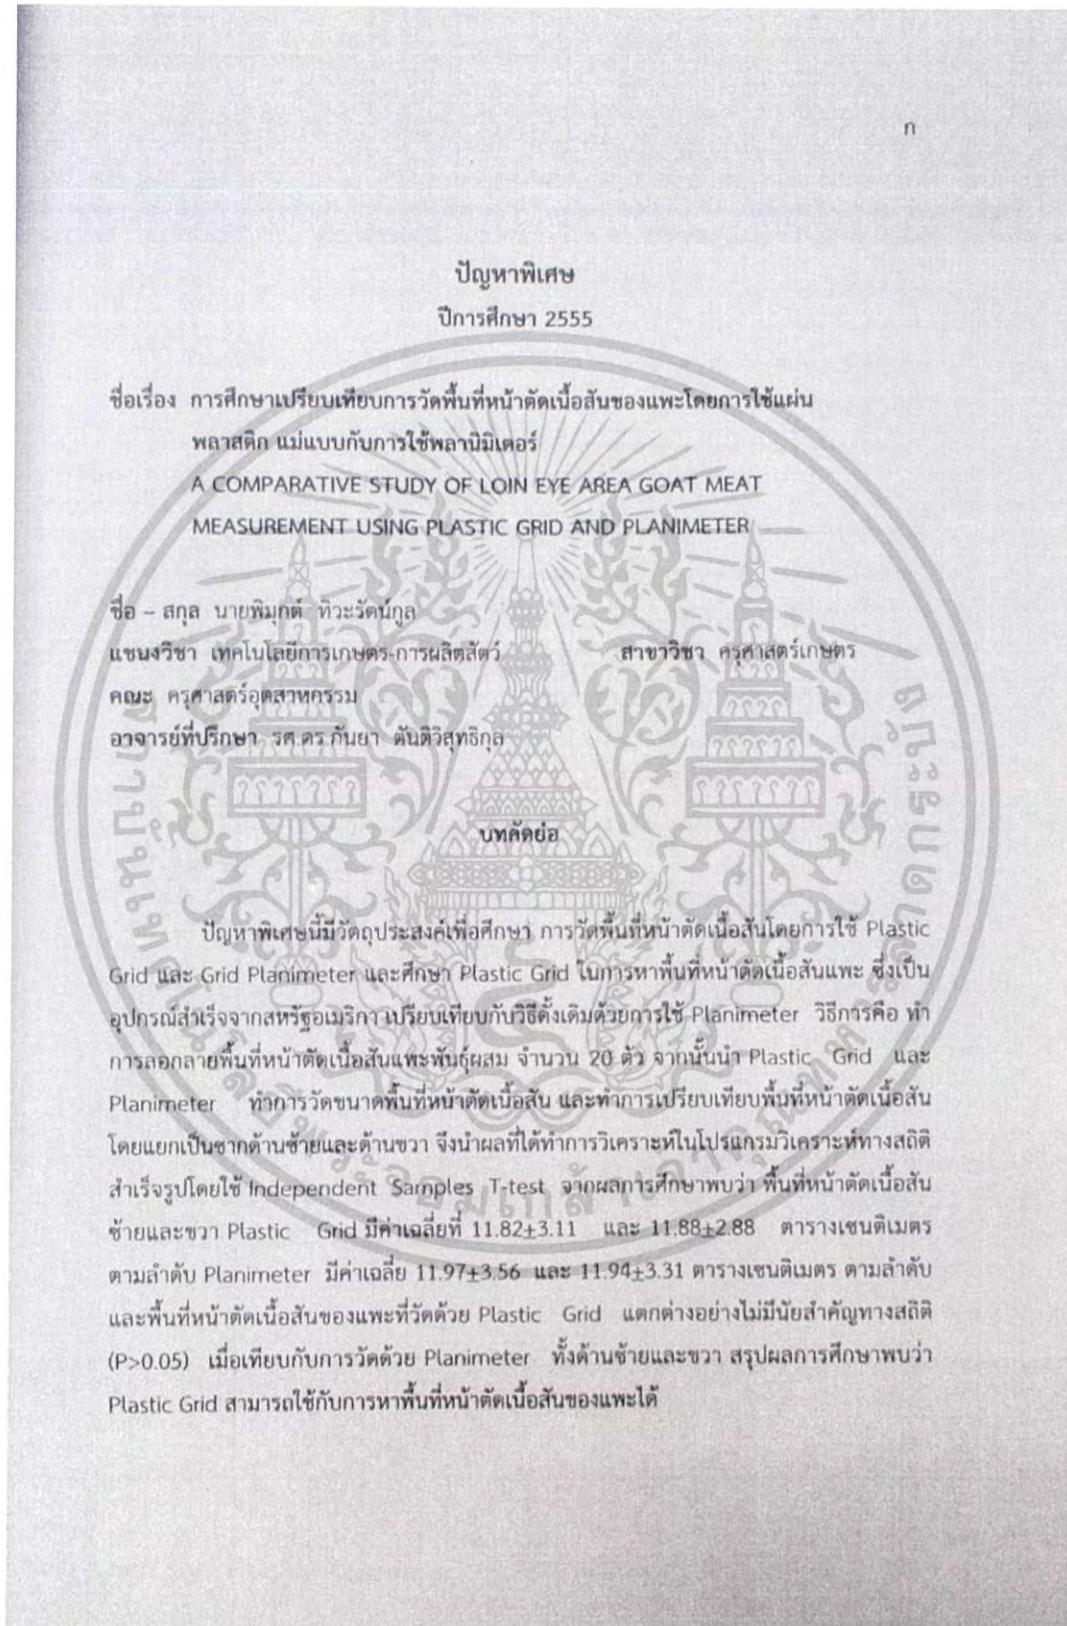 ก
ปัญหาพิเศษ
ปีการศึกษา 2555
ชื่อเรื่อง การศึกษาเปรียบเทียบการวัดพื้นที่หน้าตัดเนื้อสันของแพะโดยการใช้แผ่น
พลาสติก แม่แบบกับการใช้พลานิมิเตอร์
A COMPARATIVE STUDY OF LOIN EYE AREA GOAT MEAT
MEASUREMENT USING PLASTIC GRID AND PLANIMETER
ชื่อ – สกุล นายพิมุกต์ ทิวะรัตน์กูล
แขนงวิชา เทคโนโลยีการเกษตร-การผลิตสัตว์ สาขาวิชา ครุศาสตร์เกษตร
คณะ ครุศาสตร์อุตสาหกรรม
อาจารย์ที่ปรึกษา รศ.ดร.กันยา ตันติวิสุทธิกุล
บทคัดย่อ
ปัญหาพิเศษนี้มีวัตถุประสงค์เพื่อศึกษา การวัดพื้นที่หน้าตัดเนื้อสันโดยการใช้ Plastic
Grid และ Grid Planimeter และศึกษา Plastic Grid ในการหาพื้นที่หน้าตัดเนื้อสันแพะ ซึ่งเป็น
อุปกรณ์สำเร็จจากสหรัฐอเมริกา เปรียบเทียบกับวิธีดั้งเดิมด้วยการใช้ Planimeter วิธีการคือ ทำ
การลอกลายพื้นที่หน้าตัดเนื้อสันแพะพันธุ์ผสม จำนวน 20 ตัว จากนั้นนำ Plastic Grid และ
Planimeter ทำการวัดขนาดพื้นที่หน้าตัดเนื้อสัน และทำการเปรียบเทียบพื้นที่หน้าตัดเนื้อสัน
โดยแยกเป็นซากด้านซ้ายและด้านขวา จึงนำผลที่ได้ทำการวิเคราะห์ในโปรแกรมวิเคราะห์ทางสถิติ
สำเร็จรูปโดยใช้ Independent Samples T-test จากผลการศึกษาพบว่า พื้นที่หน้าตัดเนื้อสัน
ซ้ายและขวา Plastic Grid มีค่าเฉลี่ยที่ 11.82±3.11 และ 11.88±2.88 ตารางเซนติเมตร
ตามลำดับ Planimeter มีค่าเฉลี่ย 11.97±3.56 และ 11.94±3.31 ตารางเซนติเมตร ตามลำดับ
และพื้นที่หน้าตัดเนื้อสันของแพะที่วัดด้วย Plastic Grid แตกต่างอย่างไม่มีนัยสำคัญทางสถิติ
(P>0.05) เมื่อเทียบกับการวัดด้วย Planimeter ทั้งด้านซ้ายและขวา สรุปผลการศึกษาพบว่า
Plastic Grid สามารถใช้กับการหาพื้นที่หน้าตัดเนื้อสันของแพะได้
สถาบันเทคโนโลยีพระจอมเกล้าเจ้าคุณทหารลาดกระบัง